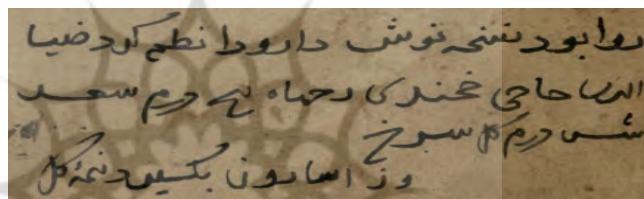 روا بود نسخه نوش دارو را نظم کرد ضیا
الدین حاجی خجندی رحماه الله درم سعد
شش درم کل سرخ
وز اسارون بکسیر ونمه کل